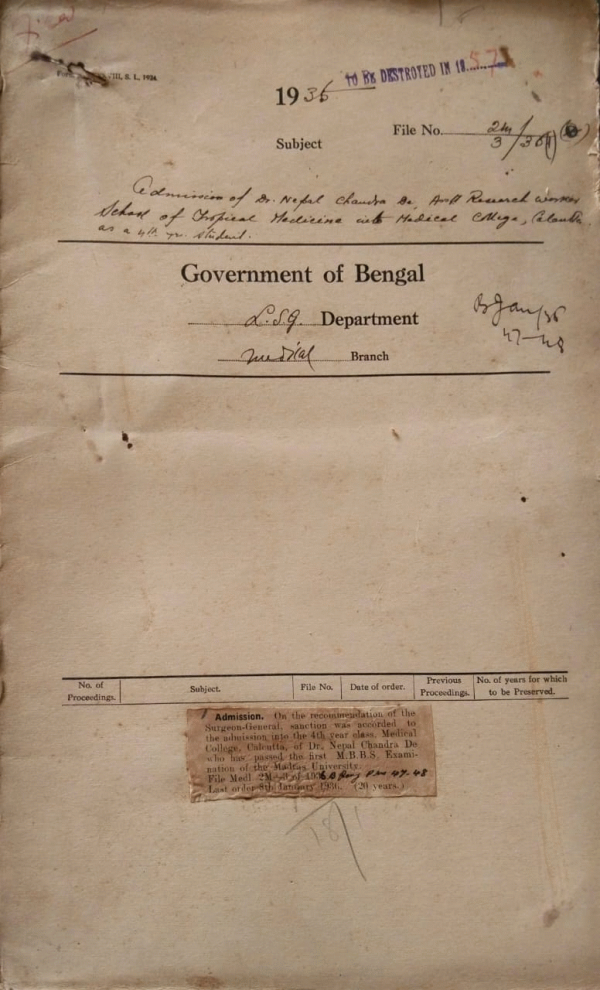 VIII, S. I., 1926.
TO BE DESTROYED IN 19 57
1936
File No. 2M/3/36(1)
Subject
Admission of Dr. Nepal Chandra De, Research worker
School of Tropical Medicine into Medical College, Calcutta
as a 4th yr. student.
Government of Bengal
L.S.G. Department
B Jan/36
47-48
Medical Branch
No. of Proceedings.
Subject.
File No.
Date of order.
Previous Proceedings.
No. of years for which to be Preserved.
Admission. On the recommendation of the
Surgeon-General, sanction was accorded to
the admission into the 4th year class, Medical
College, Calcutta, of Dr. Nepal Chandra De
who has passed the first M.B.B.S. Exami-
nation of the Madras University.
File Medl. 2M-3 of 1936 47-48
Last order 8th January 1936. (20 years.)